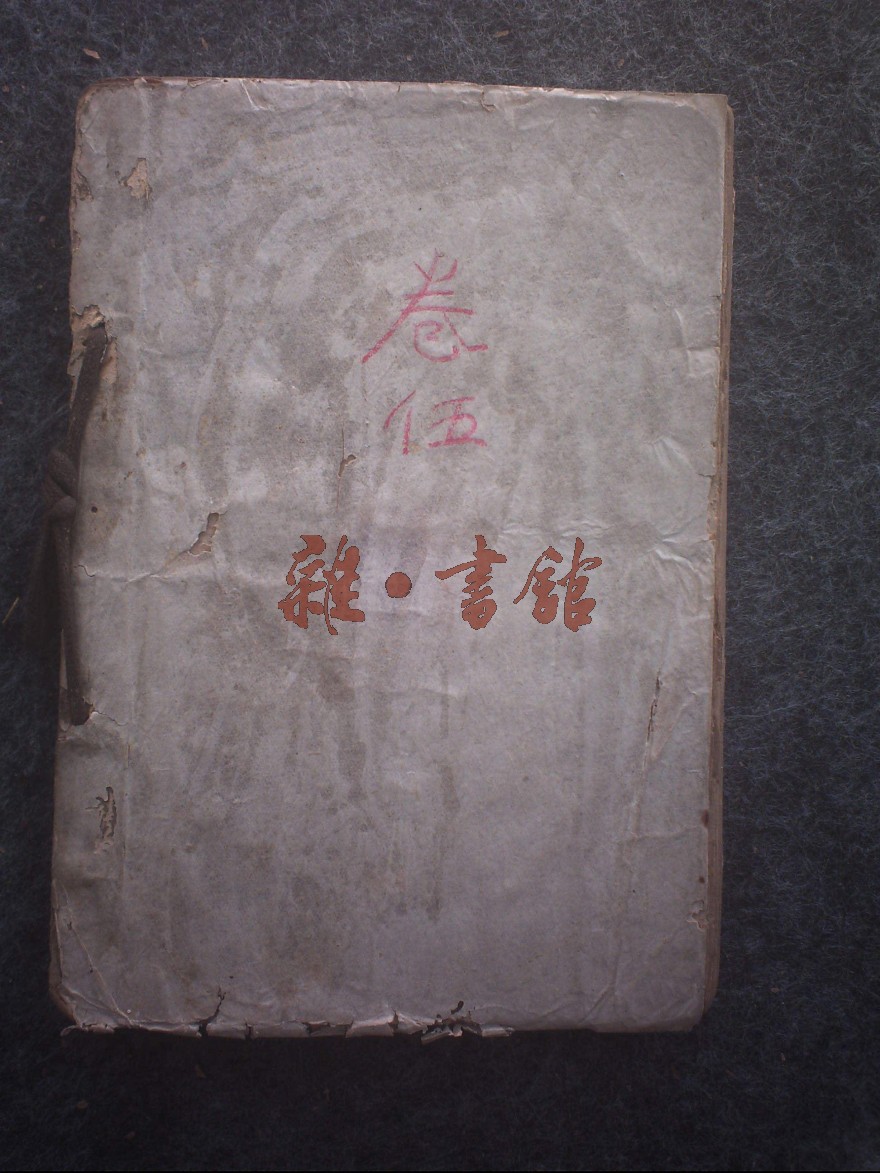 卷
伍
雜·書館